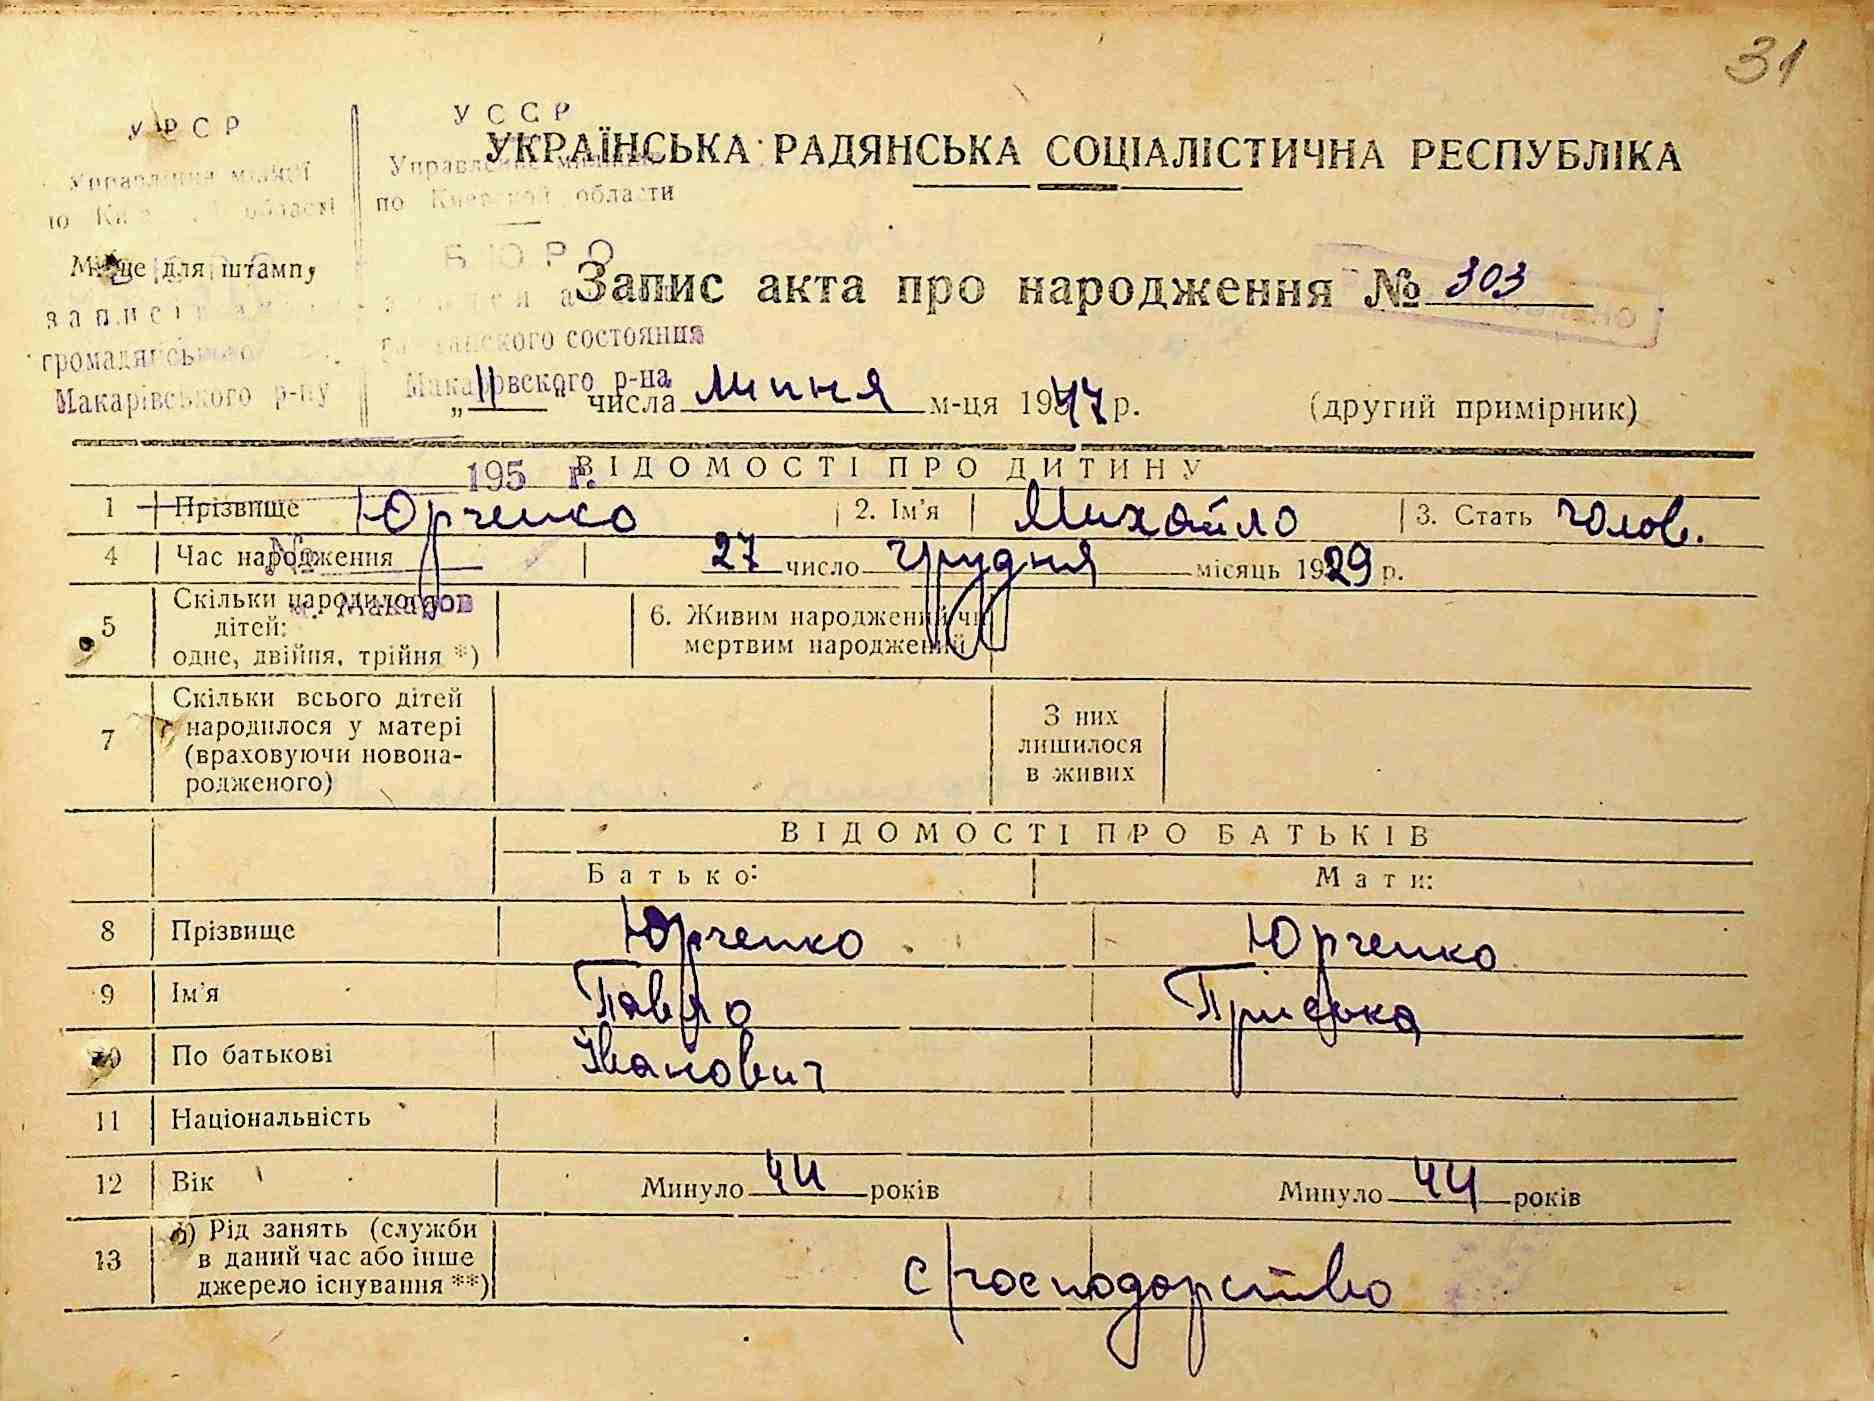 31
УРСР
УССР
УКРАЇНСЬКА РАДЯНСЬКА СОЦІАЛІСТИЧНА РЕСПУБЛІКА
Управління міліції Управление
по Київській області по Киевской области
Місце для штампу БЮРО
Запис акта про народження № 303
записів
громадянського гражданского состояния
Макарівського р-ну Макаровского р-на
„11" числа липня м-ця 1947 р. (другий примірник)
195 г.
ВІДОМОСТІ ПРО ДИТИНУ
1 Прізвище Юрченко 2. Ім'я Михайло 3. Стать чолов.
4 Час народження 27 число грудня місяць 1929 р.
№
м. Макаров
5 Скільки народилося дітей: одне, двійня, трійня *) 6. Живим народжений чи мертвим народжений
7 Скільки всього дітей народилося у матері (враховуючи новона-родженого) З них лишилося в живих
ВІДОМОСТІ ПРО БАТЬКІВ
Батько: Мати:
8 Прізвище Юрченко Юрченко
9 Ім'я Павло Пріська
10 По батькові Іванович
11 Національність
12 Вік Минуло 44 років Минуло 44 років
13 а) Рід занять (служби в даний час або інше джерело існування **) с/господарство